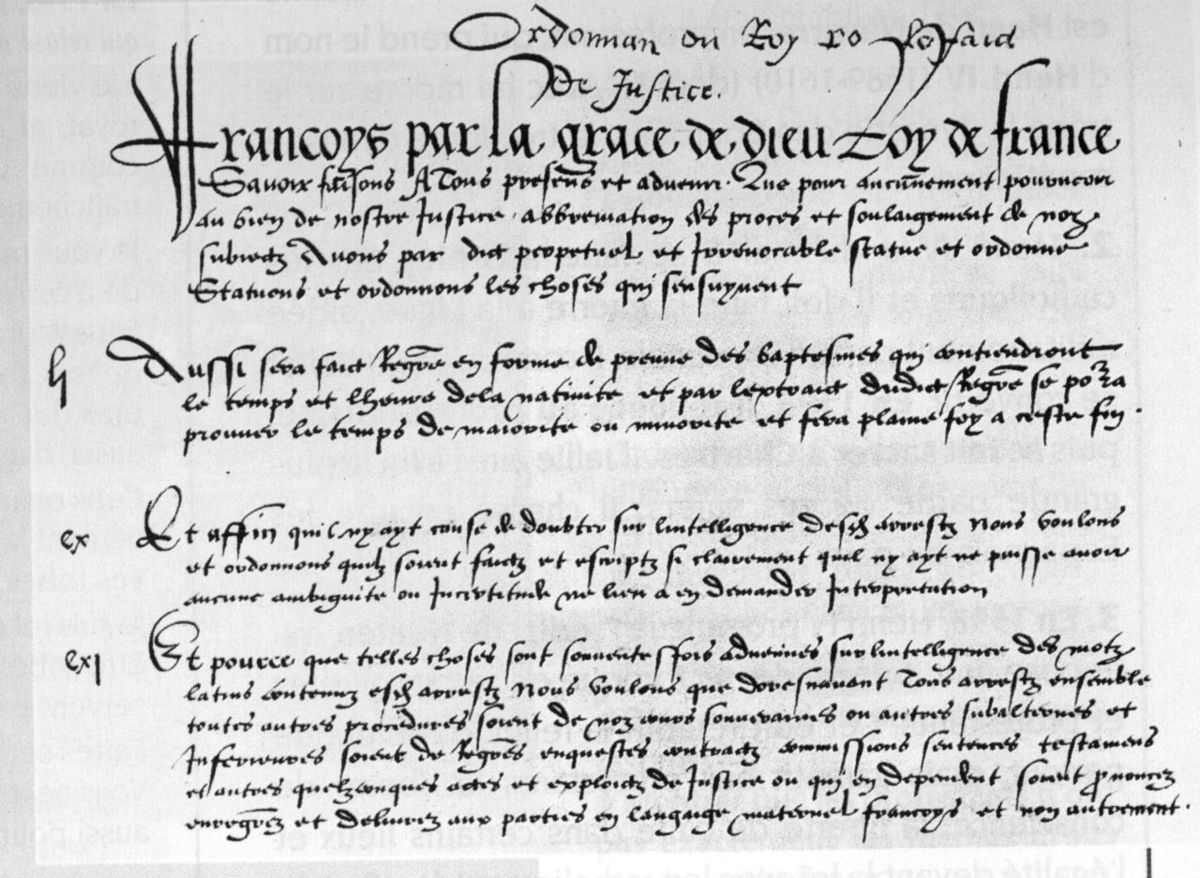 Ordonnan du Roy ro le faid
De Justice.
Francoys par la grace de dieu Roy de france
Savoir faisons A Tous presens et advenir. Que pour aucunement pourveoir
au bien de nostre Justice. abbreviation des proces et soulaigement de noz
subiectz Avons par dict perpetuel et Irrevocable statue et ordonne
Statuons et ordonnons les choses qui sensuyvent
Aussi sera faict Regre en forme de preuve des baptesmes qui contiendront
le temps et lheure dela nativite et par lextraict dudict Regre se porra
prouver le temps de maiorite ou minorite et fera plaine foy a ceste fin.
cx Et affin quil ny ayt cause de doubter sur lintelligence desd arrestz Nous voulons
et ordonnons quilz soient faictz et escriptz si clairement quil ny ayt ne puisse avoir
aucune ambiguite ou Incertitude ne lieu a en demander Interpretation
cxi Et pource que telles choses sont souventesfois advenues sur lintelligence des motz
latins contenuz esd arrestz Nous voulons que doresnavant Tous arrestz ensemble
toutes autres procedures soient de noz cours souveraines ou autres subalternes et
Inferieures soient de Regres enquestes contractz commissions sentences testamens
et autres quelzconques actes et exploictz de Justice ou qui en dependent soient pnoncez
enregrez et delivrez aux parties en langaige maternel francoys et non autrement.